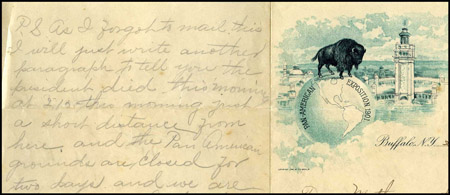 P.S. As I forgot to mail this
I will just write another
paragraph to tell you the
president died this morning
at 2/15 this morning just
a short distance from
here. and the Pan American
grounds are closed for
two days and we are
PAN-AMERICAN EXPOSITION 1901
Buffalo, N.Y.